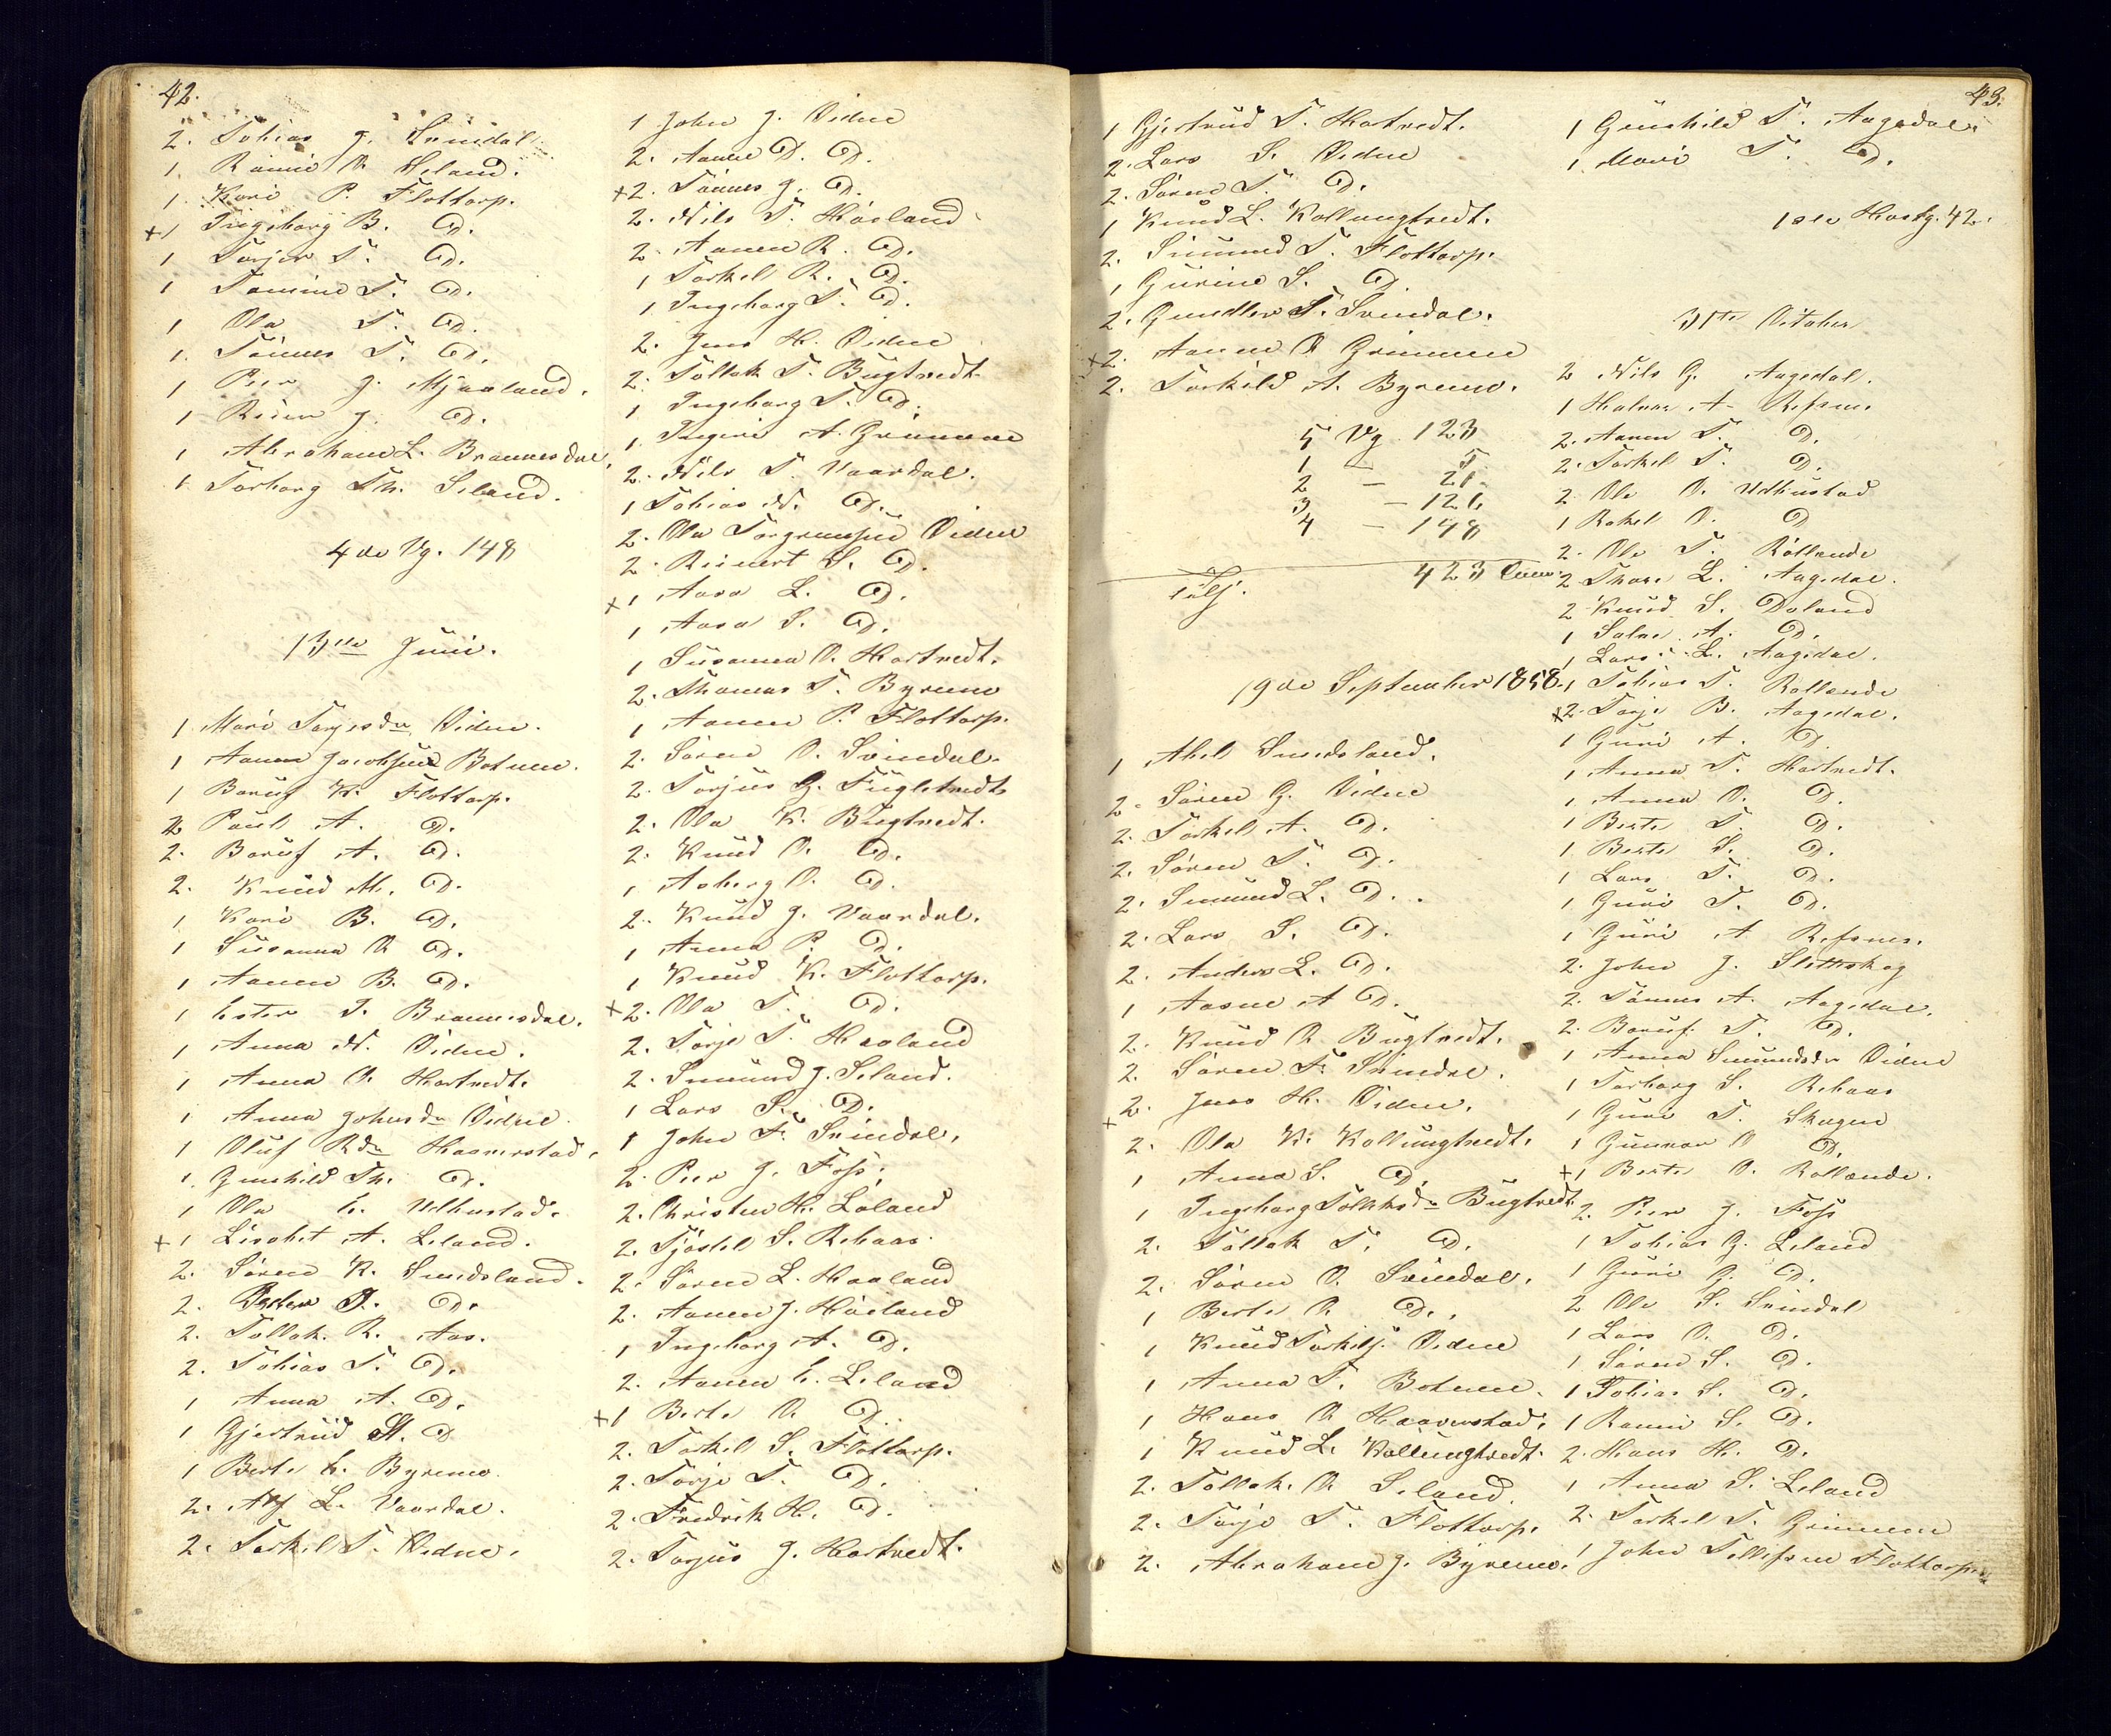 42.
2. Tobias J. Svindal
1. Rannie O. Seland.
1 Kari P. Flottorp.
+1 Ingeborg B. D.
1 Torjer T. D.
1 Tomine T. D.
1 Ola T. D.
1. Tønnes T. D.
1 Peer J. Mjaaland.
1 Reier J. D.
1 Abraham L. Brannesdal,
1 Torborg Th. Seland.
4de Vg. 148
13de Juni.
1 Mari Torjesdr Vidne.
1 Aanen Jacobsen Botnen.
1 Baruf K. Flottorp.
2 Paul A. D.
2. Baruf A. D.
2. Knud M. D.
1 Kari B. D.
1 Susanna O. D.
1 Aanen B. D.
1 Ester T. Brannesdal.
1 Anna N. Vidne.
1 Anna O. Hartvedt.
1 Anna Johnsdr Vidne.
1 Oluf Rdr Haaverstad.
1. Gunhild Th. D.
1 Ola E. Udhustad.
+1 Lisabet A. Leland.
2. Søren K. Smedsland.
2. Peder J. D.
2. Tollak. R. Aas.
2. Tobias T. D.
1 Anna A. D.
1 Gjertrud A. D
1 Berte E. Byremo.
2. Alf L. Vaardal.
2. Torkil T. Vidne.
1 John J. Vidne
2. Aanen D. D.
+2. Tønnes J. D.
2. Nils T. Høiland
2. Aanen R. D.
1 Torkel R. D.
1 Ingeborg T. D.
2. Jens H. Vidne
2. Tollak T. Bugtvedt
1 Ingeborg T. D.
1. Ingeri A. Grimmene
2. Nils T. Vaardal.
1 Tobias N. D.
2. Ola Torgrimsen Vidne
2. Reinert S. D.
+1 Aasa L. D.
1 Aasa S. D.
1 Susanna O. Hartvedt.
2. Thomas T. Byremo
1 Aanen P. Flottorp.
2. Søren O. Svindal.
2. Torjus G. Fuglestvedt
2. Ola K. Bugtvedt.
2. Knud O. D.
1 Asberg O. D.
2. Knud J. Vaardal.
1 Anna P. D.
1 Knud K. Flottorp.
+2. Ola T. D.
2. Torje T. Haaland
2. Smund J. Seland.
1 Lars S. D.
1 John F. Svindal.
2. Peer J. Foss.
2. Christen H. Løland
2. Tjøstel S. Rebaas.
2. Søren L. Haaland
2. Aanen J. Høiland
1 Ingeborg A. D.
2. Aanen E. Leland
+1 Berte O. D.
2. Torkel S. Flottorp.
2. Torje T. D.
2. Fredrik H. D.
2. Torjus J. Hartvedt.
43.
1 Gjertrud T. Hartvedt.
2. Lars S. Vidne
2. Søren T. D.
1 Knud L. Kollungtvedt.
2. Smund T. Flottorp.
1 Gurine S. D.
2. Gundler T. Svindal.
+2. Aanen O Grimmene
2. Torkild A. Byremo.
5 Vg. 123
1 — 5.
2 — 21.
3 — 126
4 — 148
423
19de September 1858.
1 Abel Smedsland.
2. Søren G. Vidne
2. Torkel A. D.
2. Søren T. D.
2. Smund L. D.
2. Lars S. D.
2. Anders L. D.
1 Aasne A D.
2. Knud O. Bugtvedt.
2. Søren F. Svindal.
+2. Jens H. Vidne.
2. Ola K. Kollungtvedt.
1 Anna S. D.
1 Ingeborg Tollaksdr Bugtvedt.
2. Tollak T. D.
2. Søren O. Svindal.
1 Berte O. D.
1 Knud Torkils. Vidne
1 Anna T. Botnen.
1 Hans O. Haaverstad.
1 Knud L. Kollungtvedt.
2. Tollak O. Seland.
2. Torje T. Flottorp.
2. Abraham J. Byremo.
1 Gunhild T. Aagedal.
1. Mari T. D.
31te October
2 Nils G. Aagedal.
1 Halvor A. Refsnes.
2. Aanen T. D.
2. Torkel T. D.
2. Ole O. Udhustad
1 Rakel O. D
2. Ole T. Røllende
2 Thore L. Aagedal.
2 Knud S. Doland
1 Salve A. D.
1 Lars L. Aagedal.
1 Tobias T. Røllende
+2. Torje B. Aagedal.
1 Guri A. D.
1 Anna T. Hartvedt.
1 Anna O. D.
1 Berte T. D.
1 Berte S. D.
1 Lars T. D.
1 Guri T. D.
1 Guri A Refsnes.
2. John J. Slettskog
2. Tønnes A. Aagedal.
2. Baruf. T. D.
1 Anna Smundsdr Vidne
1 Torborg S. Rebaas
1 Guri T. Skagen
1 Gunvor O D.
+1 Berte O. Røllende.
2. Peer J. Foss
1 Tobias G. Leland
1 Guri G. D.
2 Ole S. Svindal
1 Lars O. D.
1 Søren S. D.
1 Tobias S. D.
1 Ranni S. D.
2. Hans H. D.
1 Anna S. Leland
2 Torkel T. Grimmene
1 John Tellefsen Flottorp.